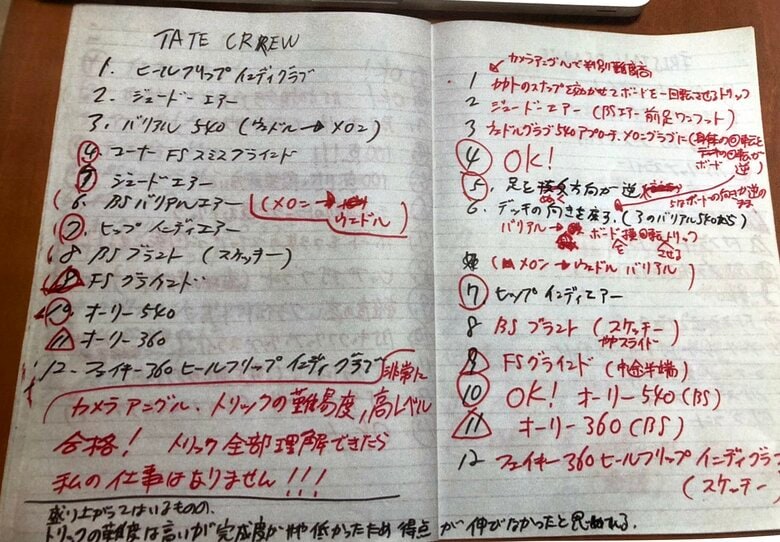 TATE CREW
1. ヒールフリップ インディグラブ
2. ジュードー エアー
3. バリアル 540 (ウェドル → メロン)
④ コーナー FS スミス ブラインド
⑤ ジュードエアー
6. BS バリアルエアー (メロン → ウェドル)
⑦ ヒップ インディエアー
8 BS ブラント (スケッチー)
9 FS グラインド
⑩ オーリー 540
11 オーリー 360
12. フェイキー 360 ヒールフリップ インディグラブ 非常に
カメラアングル、トリックの難易度、高レベル
合格! トリック全部理解できたら
私の仕事はありません!!!
盛り上がってはいるものの、
トリックの難度は高いが完成度がやや低かったため得点が伸びなかったと思われる。
カメラアングルで判別難易高
1 カカトのスナップを効かせてボードを一回転させるトリック
2 ジュードー エアー (BSエアー 前足ワンフット)
3 ウェドルグラブ 540 アプローチ、メログラブに (身体の回転と
ボードの回転が逆)
④ OK!
⑤. 足と方向が逆
5はボードの向きが逆の
6. デッキの向きを戻る。(3のバリアル540から)
バリアル → ボードを換回転させるトリック
(メロン → ウェドル バリアル)
⑦ ヒップ インディエアー
8 BS ブラント (スケッチー
ややスライド
9 FS グラインド (中途半端)
⑩ OK! オーリー 540 (BS)
11 オーリー 360 (BS)
12 フェイキー 360 ヒールフリップ インディグラブ
(スケッチー